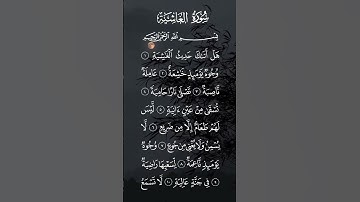 سُورَةُ الْغَاشِيَةِ
بِسْمِ اللَّهِ الرَّحْمَٰنِ الرَّحِيمِ
هَلْ أَتَىٰكَ حَدِيثُ الْغَٰشِيَةِ ١
وُجُوهٌ يَوْمَئِذٍ خَٰشِعَةٌ ٢ عَامِلَةٌ
نَّاصِبَةٌ ٣ تَصْلَىٰ نَارًا حَامِيَةً ٤
تُسْقَىٰ مِنْ عَيْنٍ ءَانِيَةٍ ٥ لَّيْسَ
لَهُمْ طَعَامٌ إِلَّا مِن ضَرِيعٍ ٦ لَّا
يُسْمِنُ وَلَا يُغْنِي مِن جُوعٍ ٧ وُجُوهٌ
يَوْمَئِذٍ نَّاعِمَةٌ ٨ لِّسَعْيِهَا رَاضِيَةٌ
٩ فِي جَنَّةٍ عَالِيَةٍ ١٠ لَّا تَسْمَعُ